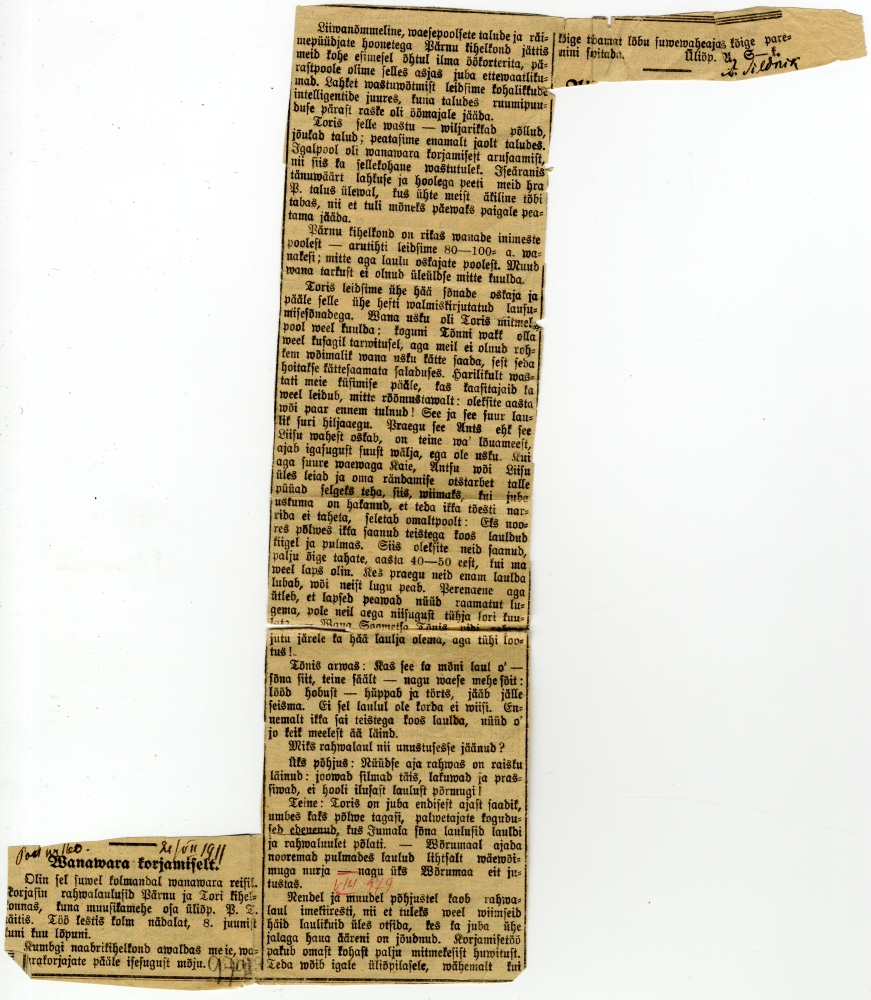 Post nr 160. 21/VII 1911
Wanawara korjamiselt.
Olin sel suwel kolmandal wanawara reisil.
Korjasin rahwalaulusid Pärnu ja Tori kihel-
konnas, kuna muusikamehe osa üliõp. P. T.
täitis. Töö kestis kolm nädalat, 8. juunist
kuni kuu lõpuni.
Kumbgi naabrikihelkond awaldas meie, wa-
narakorjajate pääle isesugust mõju.
Liiwanõmmeline, waesepoolsete talude ja räi-
mepüüdjate hoonetega Pärnu kihelkond jättis
meid kohe esimesel õhtul ilma öökorterita, pä-
rastpoole olime selles asjas juba ettewaatliku-
mad. Lahket wastuwõtmist leidsime kohalikkude
intelligentide juures, kuna taludes ruumipuu-
duse pärast raske oli öömajale jääda.
Toris selle wastu — wiljarikkad põllud,
jõukad talud; peatasime enamalt jaolt taludes.
Igalpool oli wanawara korjamisest arusaamist,
nii siis ka sellekohane wastutulek. Iseäranis
tänuwäärt lahkuse ja hoolega peeti meid hra
P. talus ülewal, kus ühte meist äkiline tõbi
tabas, nii et tuli mõneks päewaks paigale pea-
tama jääda.
Pärnu kihelkond on rikas wanade inimeste
poolest — arutihti leidsime 80—100= a. wa-
nakesi; mitte aga laulu oskajate poolest. Muud
wana tarkust ei olnud üleüldse mitte kuulda.
Toris leidsime ühe hää sõnade oskaja ja
pääle selle ühe hefti walmiskirjutatud lausu-
misesõnadega. Wana usku oli Toris mitmel
pool weel kuulda; koguni Tõnni wakk olla
weel kusagil tarwitusel, aga meil ei olnud roh-
kem wõimalik wana usku kätte saada, sest seda
hoitakse kättesaamata saladuses. Harilikult was-
tati meie küsimise pääle, kas kaasitajaid ka
weel leidub, mitte rõõmustawalt: oleksite aasta
wõi paar ennem tulnud! See ja see suur lau-
lik suri hiljaaegu. Praegu see Ants ehk see
Liisu wahest oskab, on teine wa' lõuameest,
ajab igasugust suust wälja, ega ole usku. Kui
aga suure waewaga Kaie, Antsu wõi Liisu
üles leiad ja oma rändamise otstarbet talle
püüad selgeks teha, siis, wiimaks, kui juba
uskuma on hakanud, et teda ikka tõesti nar-
rida ei taheta, seletab omaltpoolt: Eks noo-
res põlwes ikka saanud teistega koos lauldud
kiigel ja pulmas. Siis oleksite neid saanud,
palju õige tahate, aasta 40—50 eest, kui ma
weel laps olin. Kes praegu neid enam laulda
lubab, wõi neist lugu peab. Perenaene aga
ütleb, et lapsed peawad nüüd raamatut lu-
gema, pole neil aega niisugust tühja lori kuu-
lata. — Wana Soometsa Tõnis pidi
jutu järele ka hää laulja olema, aga tühi loo-
tus!
Tõnis arwas: Kas see ka mõni laul o' —
sõna siit, teine säält — nagu waese mehe sõit:
lööd hobust — hüppab ja törts, jääb jälle
seisma. Ei sel laulul ole korda ei wiisi. En-
nemalt ikka sai teistega koos laulda, nüüd o'
jo keik meelest ää läind.
Miks rahwalaul nii unustusesse jäänud?
Üks põhjus: Nüüdse aja rahwas on raisku
läinud: joowad silmad täis, lakuwad ja pras-
siwad, ei hooli ilusast laulust põrmugi!
Teine: Toris on juba endisest ajast saadik,
umbes kaks põlwe tagasi, palwetajate kogudu-
sed edenenud, kus Jumala sõna laulusid lauldi
ja rahwaluulet põlati. — Wõrumaal ajada
nooremad pulmades laulud lihtsalt wäewõi-
muga nurja — nagu üks Wõrumaa eit ju-
tustas.
Nendel ja muudel põhjustel kaob rahwa-
laul imekiresti, nii et tuleks weel wiimseid
häid laulikuid üles otsida, kes ka juba ühe
jalaga haua ääreni on jõudnud. Korjamisetöö
pakub omast kohast palju mitmekesist huwitust.
Teda wõib igale üliõpilasele, wähemalt kui
kõige tõsamat lõbu suwewaheajas kõige pare-
mini soitada. Üliõp. A. S—k.